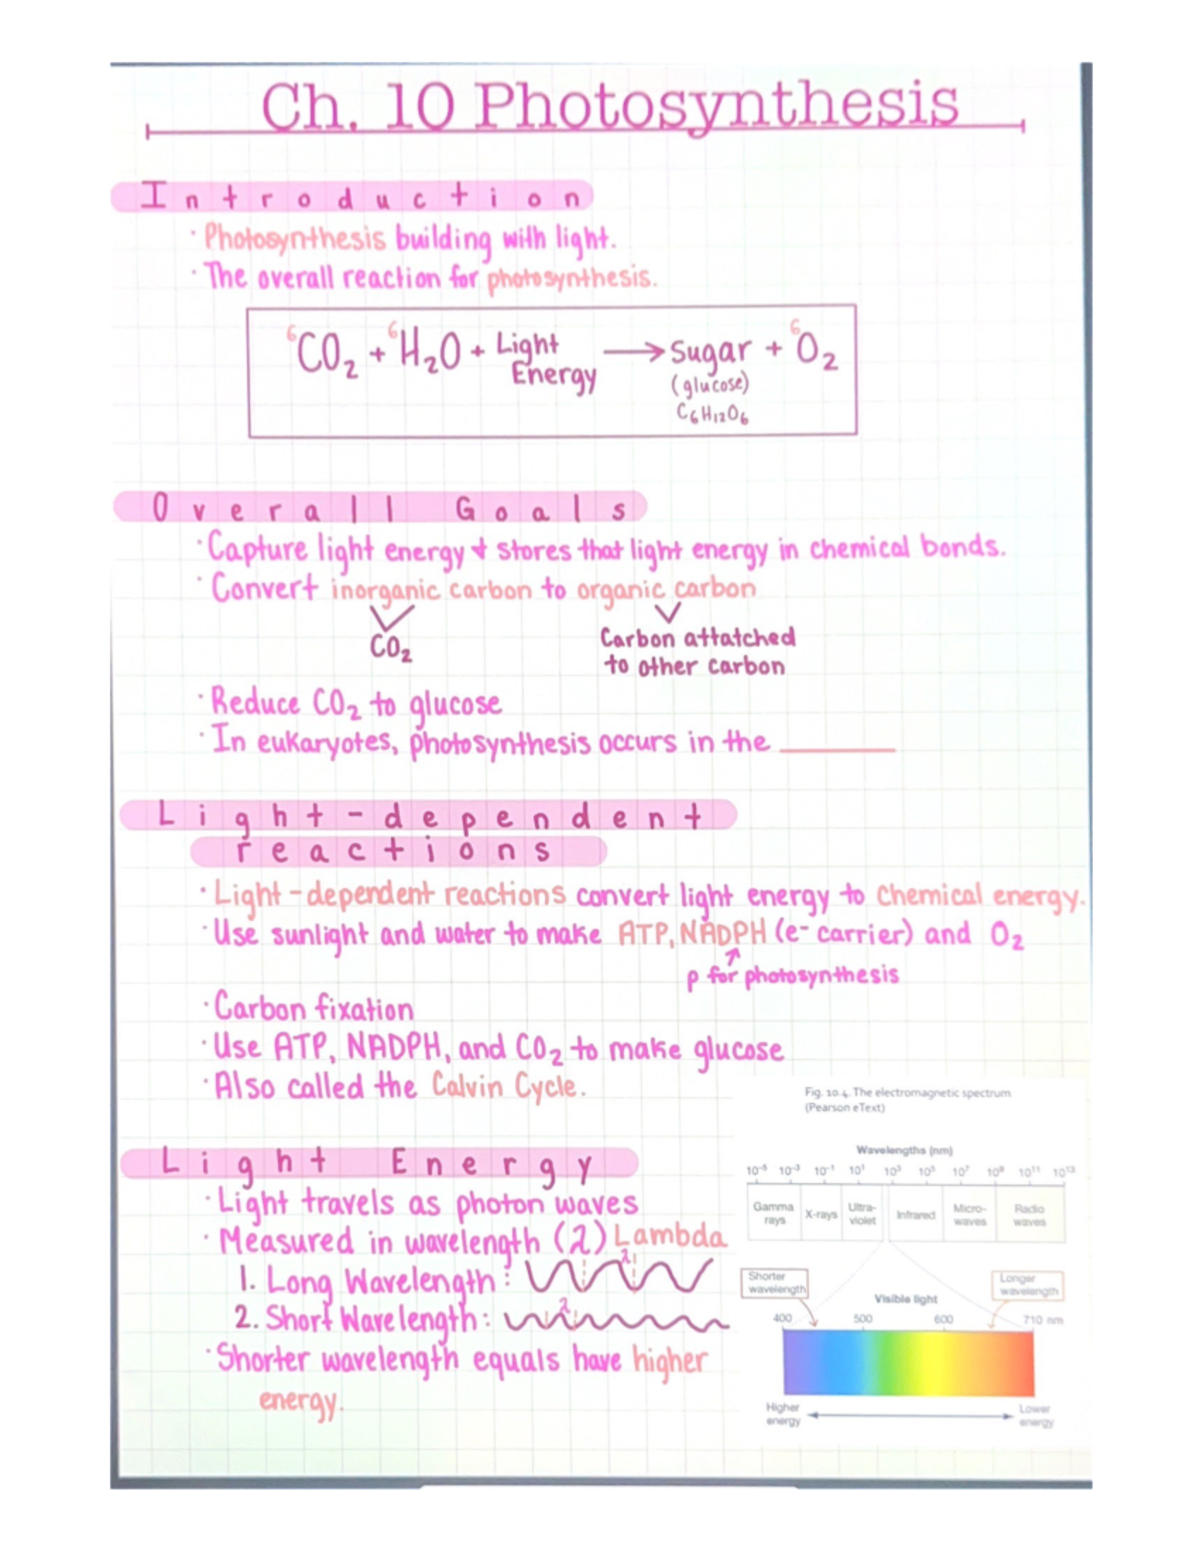 Ch. 10 Photosynthesis
Introduction
· Photosynthesis building with light.
· The overall reaction for photosynthesis.
6CO₂ + 6H₂O + Light Energy → Sugar + 6O₂
(glucose)
C₆H₁₂O₆
Overall Goals
· Capture light energy & stores that light energy in chemical bonds.
· Convert inorganic carbon to organic carbon
CO₂
Carbon attatched
to other carbon
· Reduce CO₂ to glucose
· In eukaryotes, photosynthesis occurs in the ________
Light-dependent
reactions
· Light-dependent reactions convert light energy to chemical energy.
· Use sunlight and water to make ATP, NADPH (e⁻ carrier) and O₂
p for photosynthesis
· Carbon fixation
· Use ATP, NADPH, and CO₂ to make glucose
· Also called the Calvin Cycle.
Light Energy
· Light travels as photon waves
· Measured in wavelength (λ) Lambda
1. Long Wavelength: λ
2. Short Wavelength: λ
· Shorter wavelength equals have higher
energy.
Fig. 10.4. The electromagnetic spectrum
(Pearson eText)
Wavelengths (nm)
10⁻⁵ 10⁻³ 10⁻¹ 10¹ 10³ 10⁵ 10⁷ 10⁹ 10¹¹ 10¹³
Gamma rays X-rays Ultra-violet Infrared Micro-waves Radio waves
Shorter wavelength
Longer wavelength
Visible light
400 500 600 710 nm
Higher energy
Lower energy